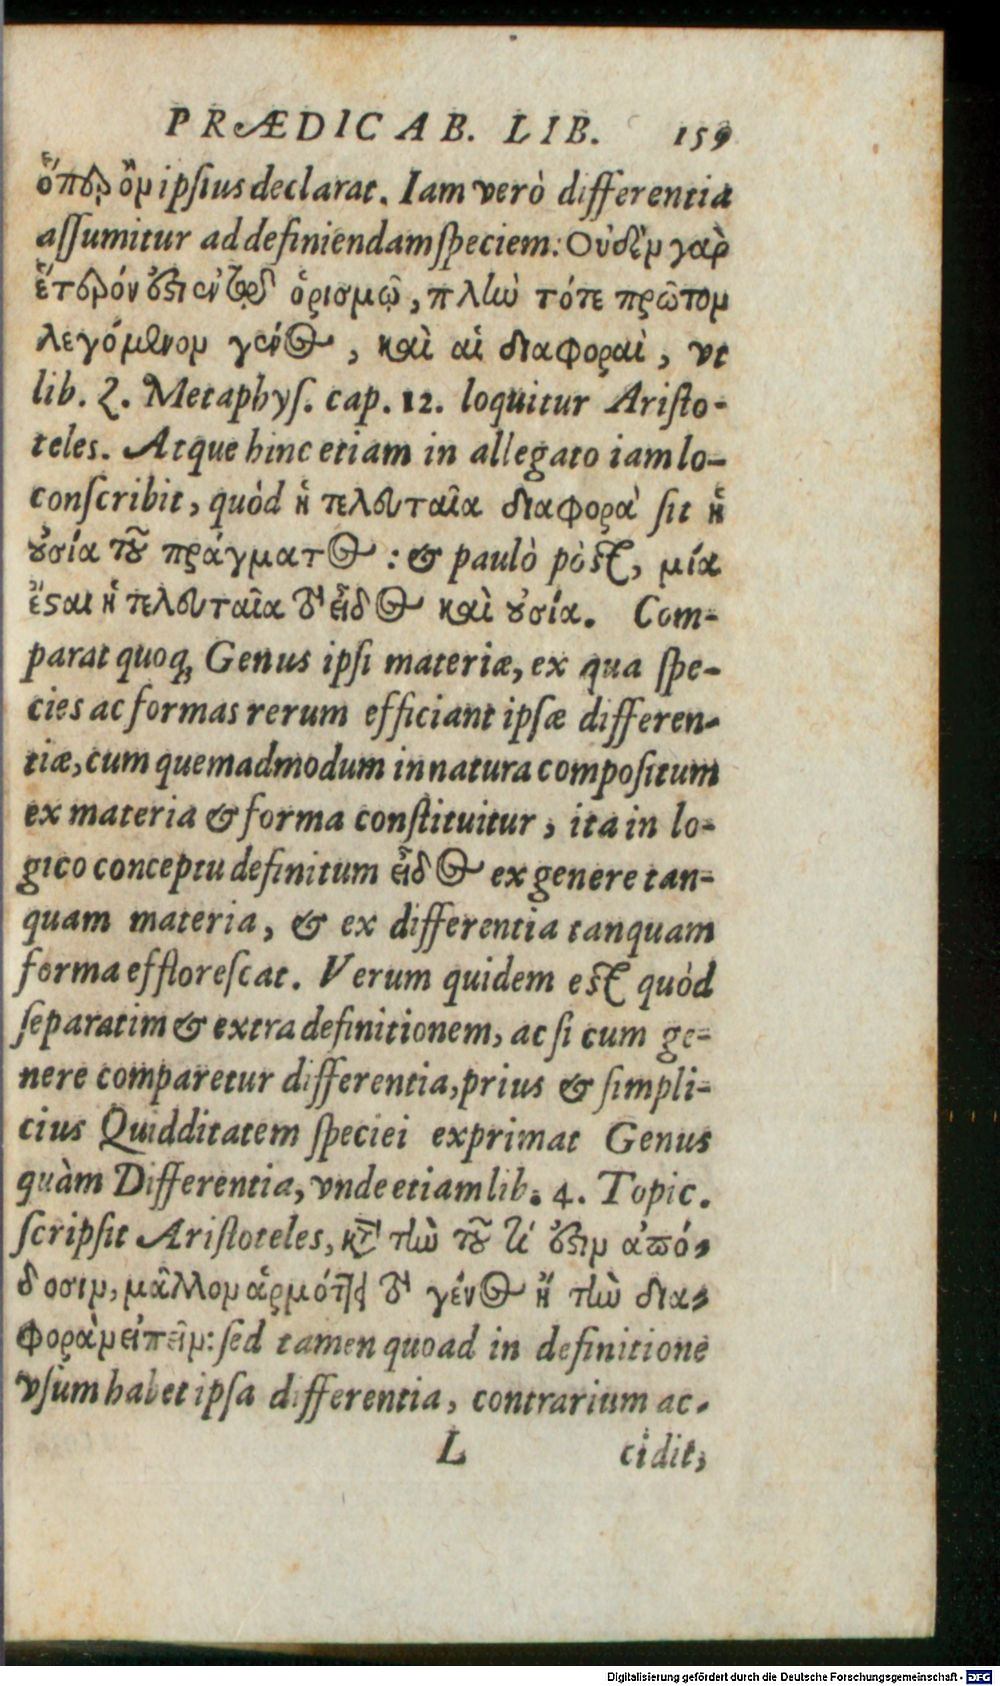 PRÆDICAB. LIB. 159
ὅπερ ὂν ipsius declarat. Iam verò differentia
assumitur ad definiendam speciem: Οὐδὲν γὰρ
ἕτερόν ἐστιν ἐν τῷ ὁρισμῷ, πλὴν τότε πρῶτον
λεγόμενον γένος, καὶ αἱ διαφοραὶ, vt
lib. ζ. Metaphys. cap. 12. loquitur Aristo-
teles. Atque hinc etiam in allegato iam lo-
co scribit, quòd ἡ τελευταῖα διαφορὰ sit ἡ
οὐσία τοῦ πράγματος: & paulò pòst, μία
ἔσται ἡ τελευταῖα τὸ εἶδος καὶ οὐσία. Com-
parat quoq; Genus ipsi materiæ, ex qua spe-
cies ac formas rerum efficiant ipsæ differen-
tiæ, cum quemadmodum in natura compositum
ex materia & forma constituitur, ita in lo-
gico conceptu definitum εἶδος ex genere tan-
quam materia, & ex differentia tanquam
forma efflorescat. Verum quidem est quòd
separatim & extra definitionem, ac si cum ge-
nere comparetur differentia, prius & simpli-
cius Quidditatem speciei exprimat Genus
quàm Differentia, vnde etiam lib. 4. Topic.
scripsit Aristoteles, κατὰ τὴν τοῦ τί ἐστιν ἀπό-
δοσιν, μᾶλλον ἁρμόττει τὸ γένος ἢ τὴν δια-
φορὰν εἰπεῖν: sed tamen quoad in definitione
vsum habet ipsa differentia, contrarium ac-
L cidit,
Digitalisierung gefördert durch die Deutsche Forschungsgemeinschaft - DFG